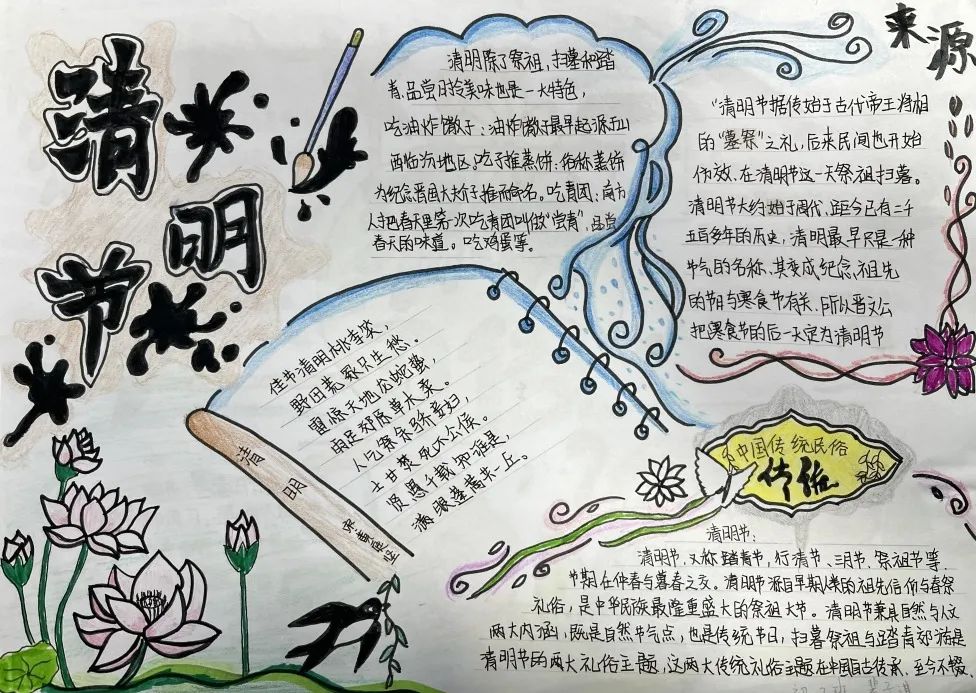 清
明
节
清明除了祭祖，扫墓和踏
青，品尝时令美味也是一大特色，
吃油炸馓子：油炸馓子最早起源于山
西临汾地区。吃子推蒸饼：俗称蒸饼
为纪念晋国大夫介子推而命名。吃青团：南方
人把春天里第一次吃青团叫做“尝青”，品尝
春天的味道。吃鸡蛋等。
来源
“清明节据传始于古代帝王将相
的“墓祭”之礼，后来民间也开始
仿效，在清明节这一天祭祖扫墓。
清明节大约始于周代，距今已有二千
五百多年的历史，清明最早只是一种
节气的名称，其变成纪念祖先
的节日与寒食节有关，所以晋文公
把寒食节的后一天定为清明节
佳节清明桃李笑，
野田荒冢只生愁。
雷惊天地龙蛇蛰，
雨足郊原草木柔。
人乞祭余骄妾妇，
士甘焚死不公侯。
贤愚千载知谁是，
满眼蓬蒿共一丘。
清明
宋 黄庭坚
中国传统民俗
传俗
清明节：
清明节，又称踏青节，行清节、三月节、祭祖节等，
节期在仲春与暮春之交。清明节源自早期人类的祖先信仰与春祭
礼俗，是中华民族最隆重盛大的祭祖大节。清明节兼具自然与人文
两大内涵，既是自然节气点，也是传统节日，扫墓祭祖与踏青郊游是
清明节的两大礼俗主题，这两大传统礼俗主题在中国自古传承，至今不辍